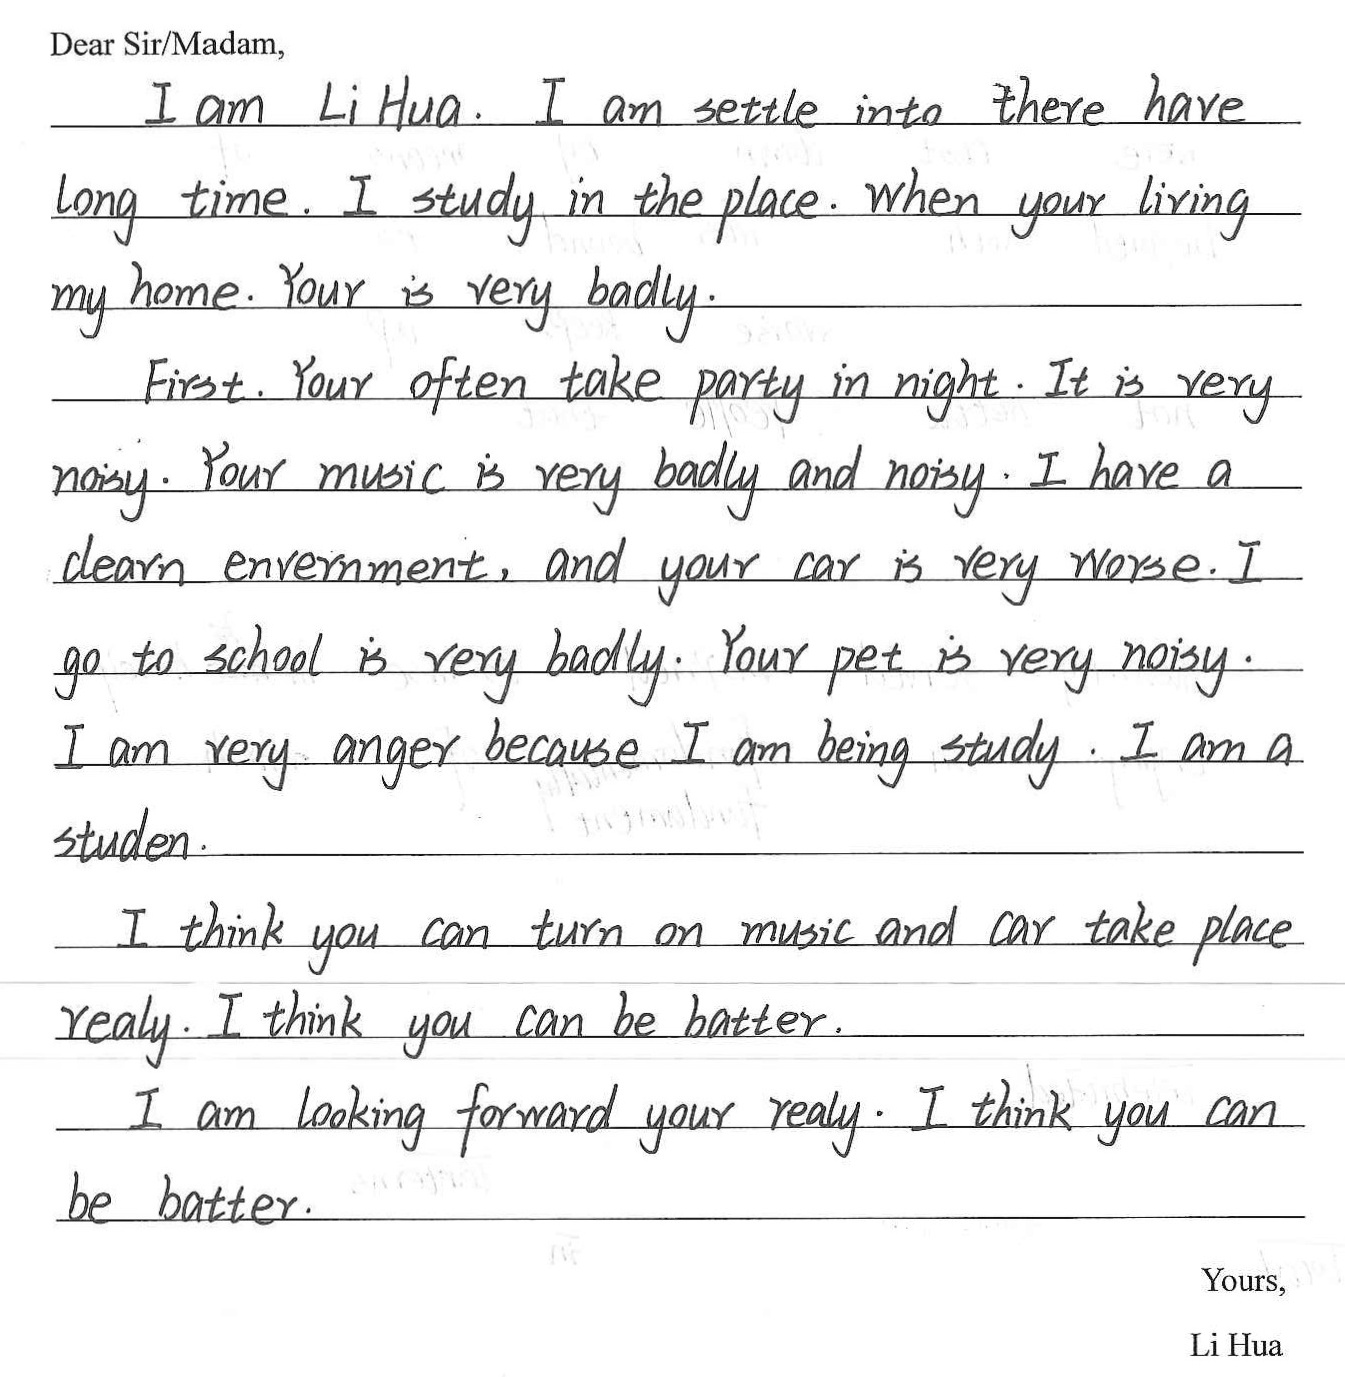 Dear Sir/Madam,
I am Li Hua. I am settle into there have
long time. I study in the place. When your living
my home. Your is very badly.
First. Your often take party in night. It is very
noisy. Your music is very badly and noisy. I have a
clearn envernment, and your car is very worse. I
go to school is very badly. Your pet is very noisy.
I am very anger because I am being study. I am a
studen.
I think you can turn on music and car take place
realy. I think you can be batter.
I am looking forward your realy. I think you can
be batter.
Yours,
Li Hua